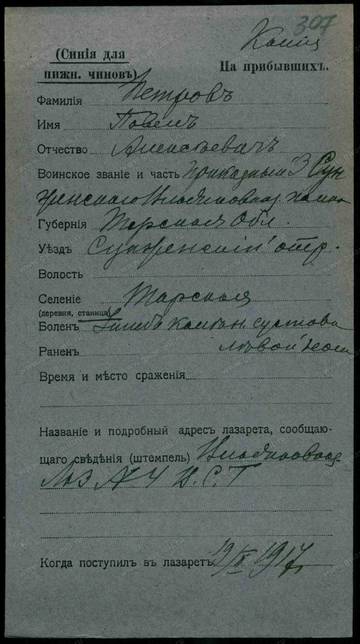 307
(Синія для нижн. чиновъ)
На прибывшихъ.
Фамилія Петровъ
Имя Павелъ
Отчество Алексѣевичъ
Воинское званіе и часть приказный 3 Сун
женского Владикавказ.
Губернія Терская Обл.
Уѣздъ Сунженскій отд.
Волость
Селеніе Тарская
(деревня, станица)
Боленъ Ушибъ колѣн сустава
Раненъ лѣвой ноги
Время и мѣсто сраженія
Названіе и подробный адресъ лазарета, сообщаю-
щаго свѣдѣнія (штемпель) Владикавказ
Лаз № 4 В. С. Г
Когда поступилъ въ лазаретъ 1917